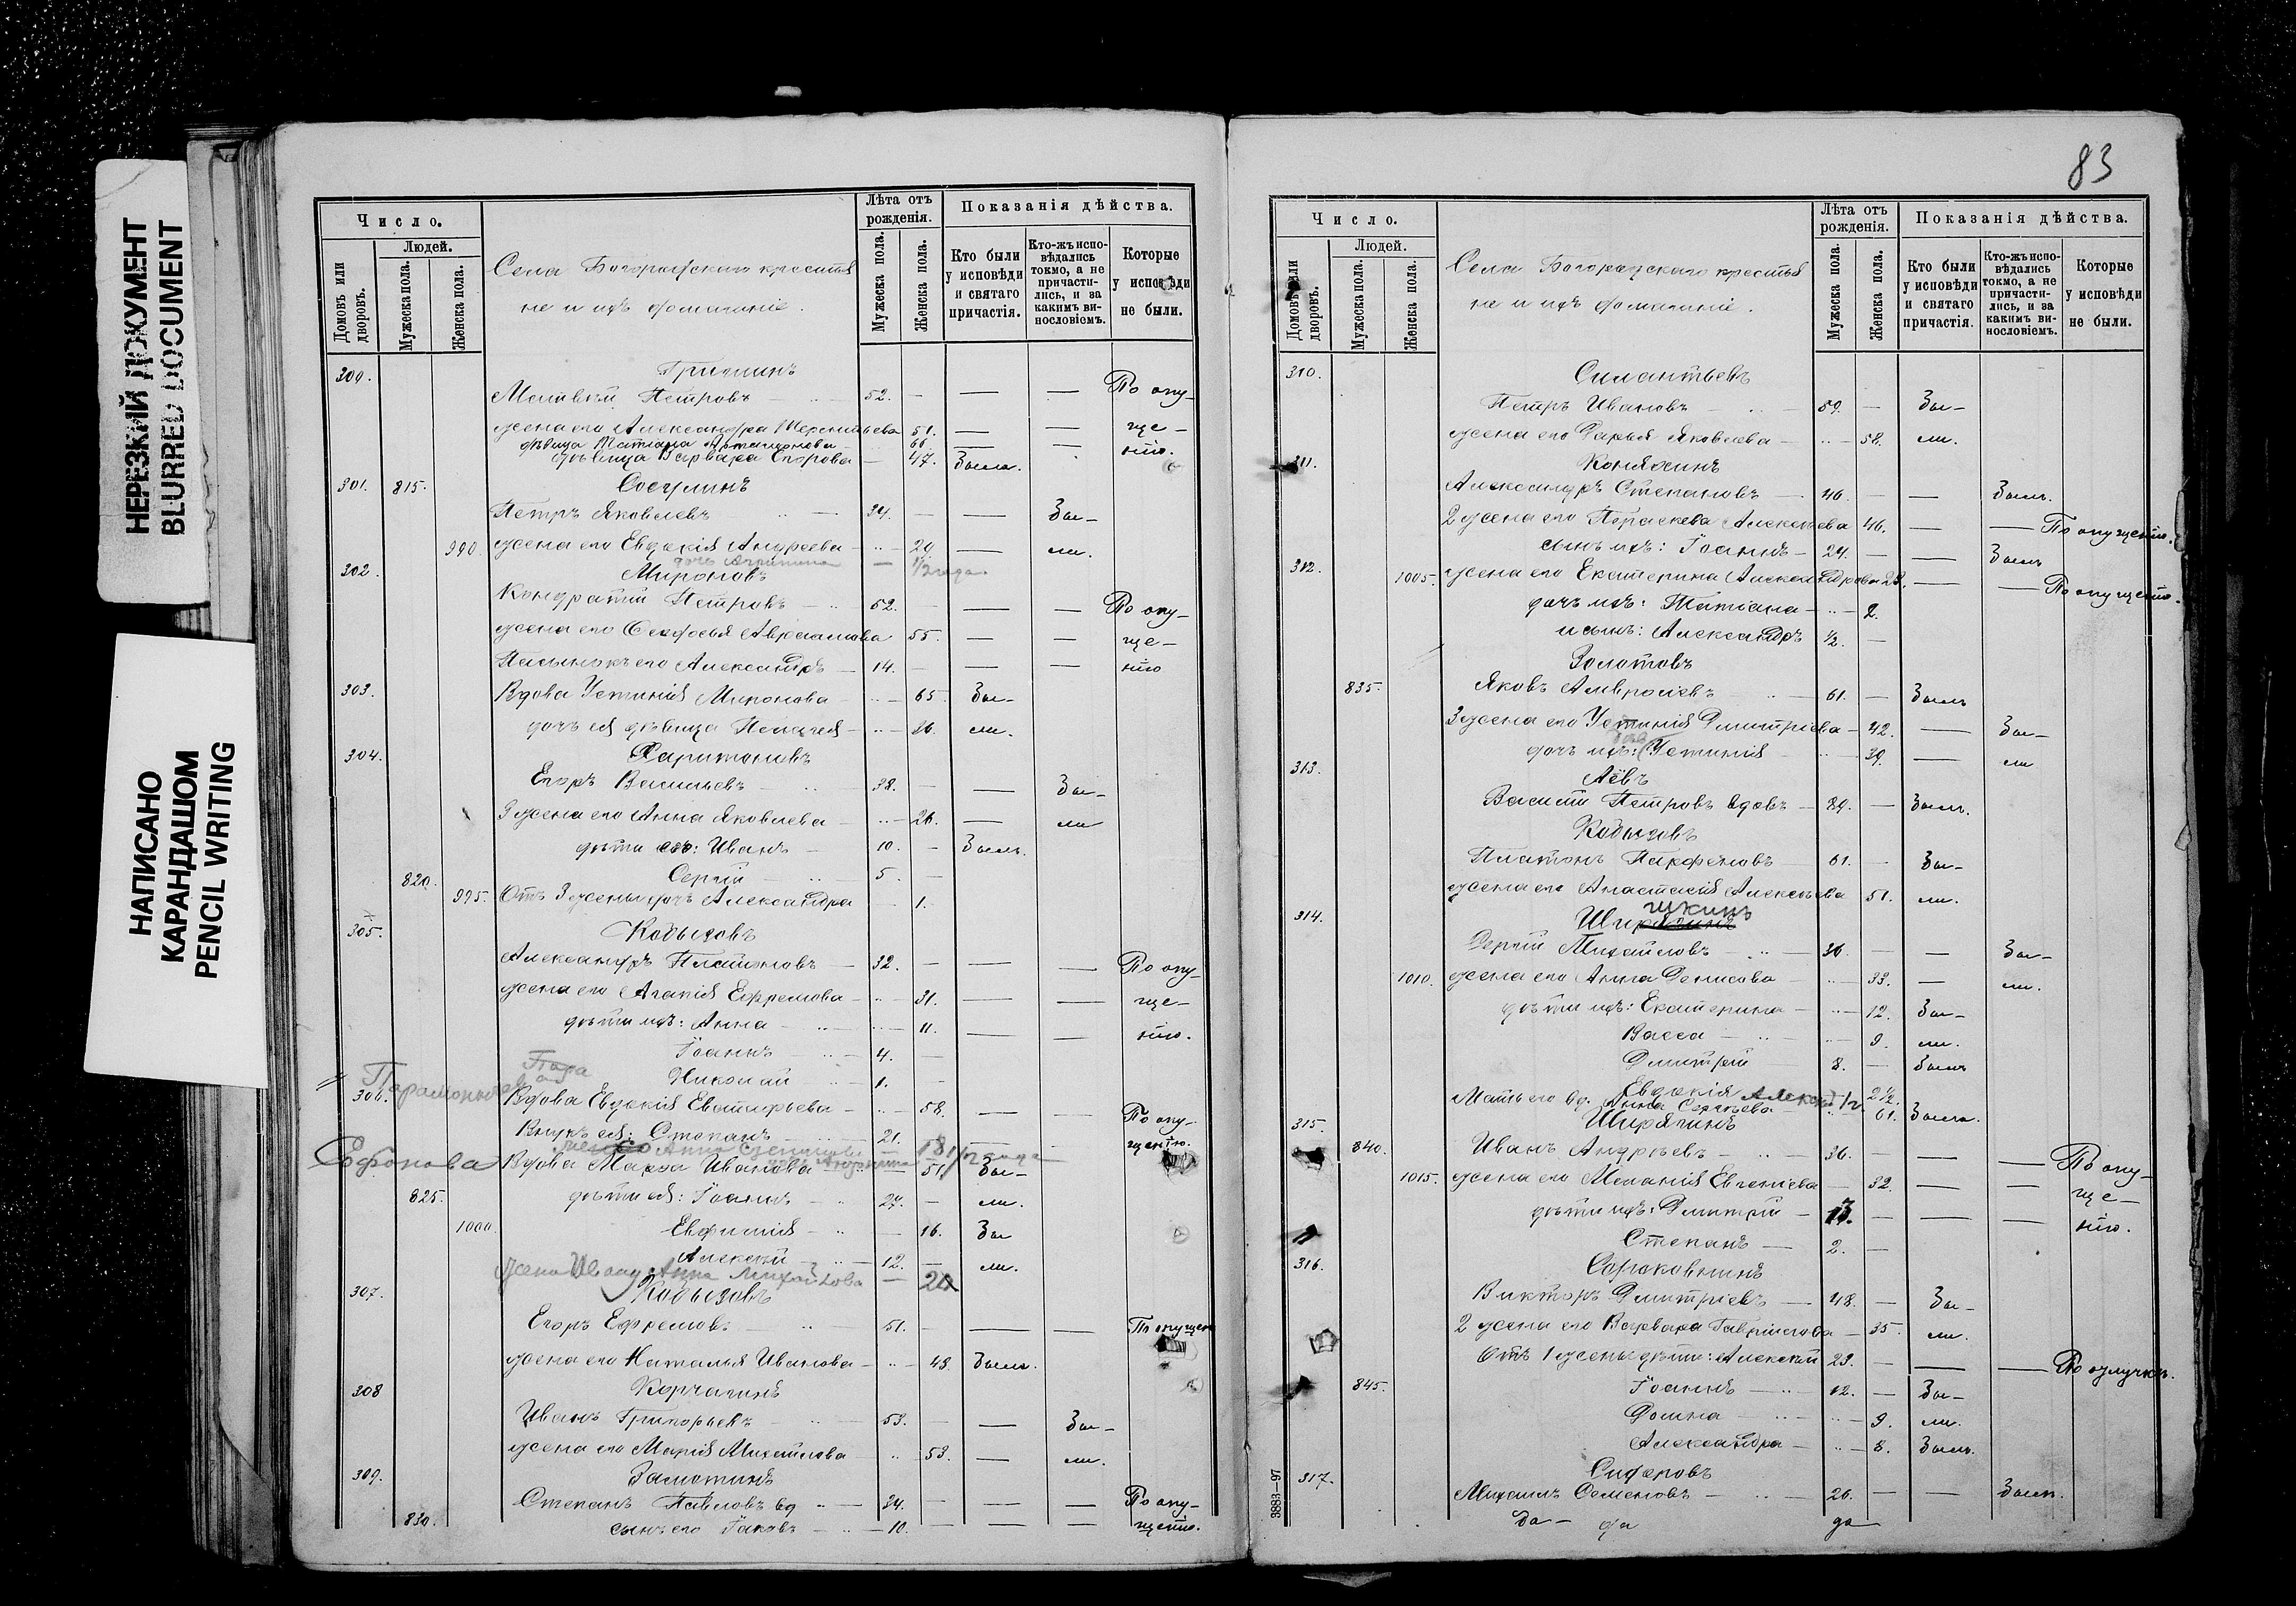 НЕРЕЗКИЙ ДОКУМЕНТ
BLURRED DOCUMENT
НАПИСАНО
КАРАНДАШОМ
PENCIL WRITING
Число.
Людей.
Домовъ или дворовъ.
Мужеска пола.
Женска пола.
Села Богородскаго крестья
не и ихъ домашніе.
Лѣта отъ рожденія.
Мужеска пола.
Женска пола.
Показанія дѣйства.
Кто были у исповѣди и святаго причастія.
Кто-жъ исповѣдались токмо, а не причастились, и за какимъ винословіемъ.
Которые у исповѣди не были.
300.
Петровъ 52. — — — По опу-
жена его Александра Терентьева 51. — — ще-
дѣвица Татіана 60 нію.
дѣвица Варвара Егорова — 47. Была.
301. 815.
Петръ Яковлевъ 34. — — Бы-
990. жена его Евдокія Андреева 29. — ли.
дочь — 1/2 года
302. Мироновъ
Кондратій Петровъ 52. — — По опу-
жена его Ѳеодосья Авраамова 55. — — ще-
Пасынокъ его Александръ 14. — — — нію
303. Вдова Устинія Миронова 65. Бы-
дочь ея дѣвица Пелагея 26. ли.
304. Харитоновъ
Егоръ Васильевъ 38. — — Бы-
3 жена его Анна Яковлева 26. — ли
дѣти его: Иванъ 10. — Былъ.
820. Сергій 5. —
995. Отъ 3 жены дочь Александра 1.
305. Кобызовъ
Александръ Платоновъ 32. — — — По опу-
жена его Агапія Ефремова 31. — — ще-
дѣти ихъ: Анна 11. — — нію.
Іоаннъ 4. —
Николай 1. —
306. Вдова Евдокія 58. — — По опу-
Внукъ ея: Степанъ 21. — щенію.
Вдова Марѳа Иванова 51 Бы-
825. дѣти ея: Іоаннъ 27. — ли.
1000. Евфимія — 16. Бы
Алексѣй 12. — ли.
жена Ивану Анна Михайлова —
307. Кобызовъ
Егоръ Ефремовъ 51. — — — По опущен
жена его Наталья Иванова 49. Была.
308 Корчагинъ
Иванъ Григорьевъ 53. — — Бы-
жена его Марія Михайлова 53. — ли.
309. Замотинъ
Степанъ Павловъ вд 34. — — — По опу-
830. сынъ его Іаковъ 10. — — — щенію.
83
Число.
Людей.
Домовъ или дворовъ.
Мужеска пола.
Женска пола.
Села Богородскаго крестья
не и ихъ домашніе.
Лѣта отъ рожденія.
Мужеска пола.
Женска пола.
Показанія дѣйства.
Кто были у исповѣди и святаго причастія.
Кто-жъ исповѣдались токмо, а не причастились, и за какимъ винословіемъ.
Которые у исповѣди не были.
310. Силантьевъ
Петръ Ивановъ 59. — Бы-
жена его Дарья Яковлева 58. ли.
311. Коняхинъ
Александръ Степановъ 46. — — Былъ.
2 жена его Параскева Алексѣева 46. — — По опущенію.
сынъ ихъ: Іоаннъ 24. — — Былъ
312. 1005. жена его Екатерина Александрова 23. — — По опущенію.
дочь ихъ: Татіана 2.
и сынъ: Александръ 1/2. —
Золотовъ
835. Яковъ Амвросіевъ 61. — Былъ
3 жена его Устинія Дмитріева 42. — Бы-
313. дочь ихъ: Устинія 39. — ли
Васили Петровъ вдовъ — Былъ.
Кобызовъ
Платонъ Парфеновъ 61. — Бы-
жена его Анастасія Алексѣева 51. ли.
314.
Сергій Михайловъ 36. — — Бы-
1010. жена его Анна Денисова 33. — ли.
дѣти ихъ: Екатерина 12. Бы-
Васса 9. ли.
Дмитрій 8. Былъ
Евдокія
Мать его вд. Анна Сергѣева 61. Была.
315. Ширягинъ
840. Иванъ Андреевъ 36. — — — По опу-
1015. жена его Меланія Евгеніева 32. — — ще-
дѣти ихъ: Дмитрій 13. — — — нію.
Степанъ 2. —
316. Сороковнинъ
Викторъ Дмитріевъ 48. — Бы-
2 жена его Варвара Гавріилова 35. ли.
Отъ 1 жены дѣти: Алексѣй 23. — — — По отлучкѣ.
845. Іоаннъ 12. — Бы-
Домна 9. ли.
Александра 8. Была.
317. Сидоровъ
Михаилъ Семеновъ 26. — — Былъ.
3883—97